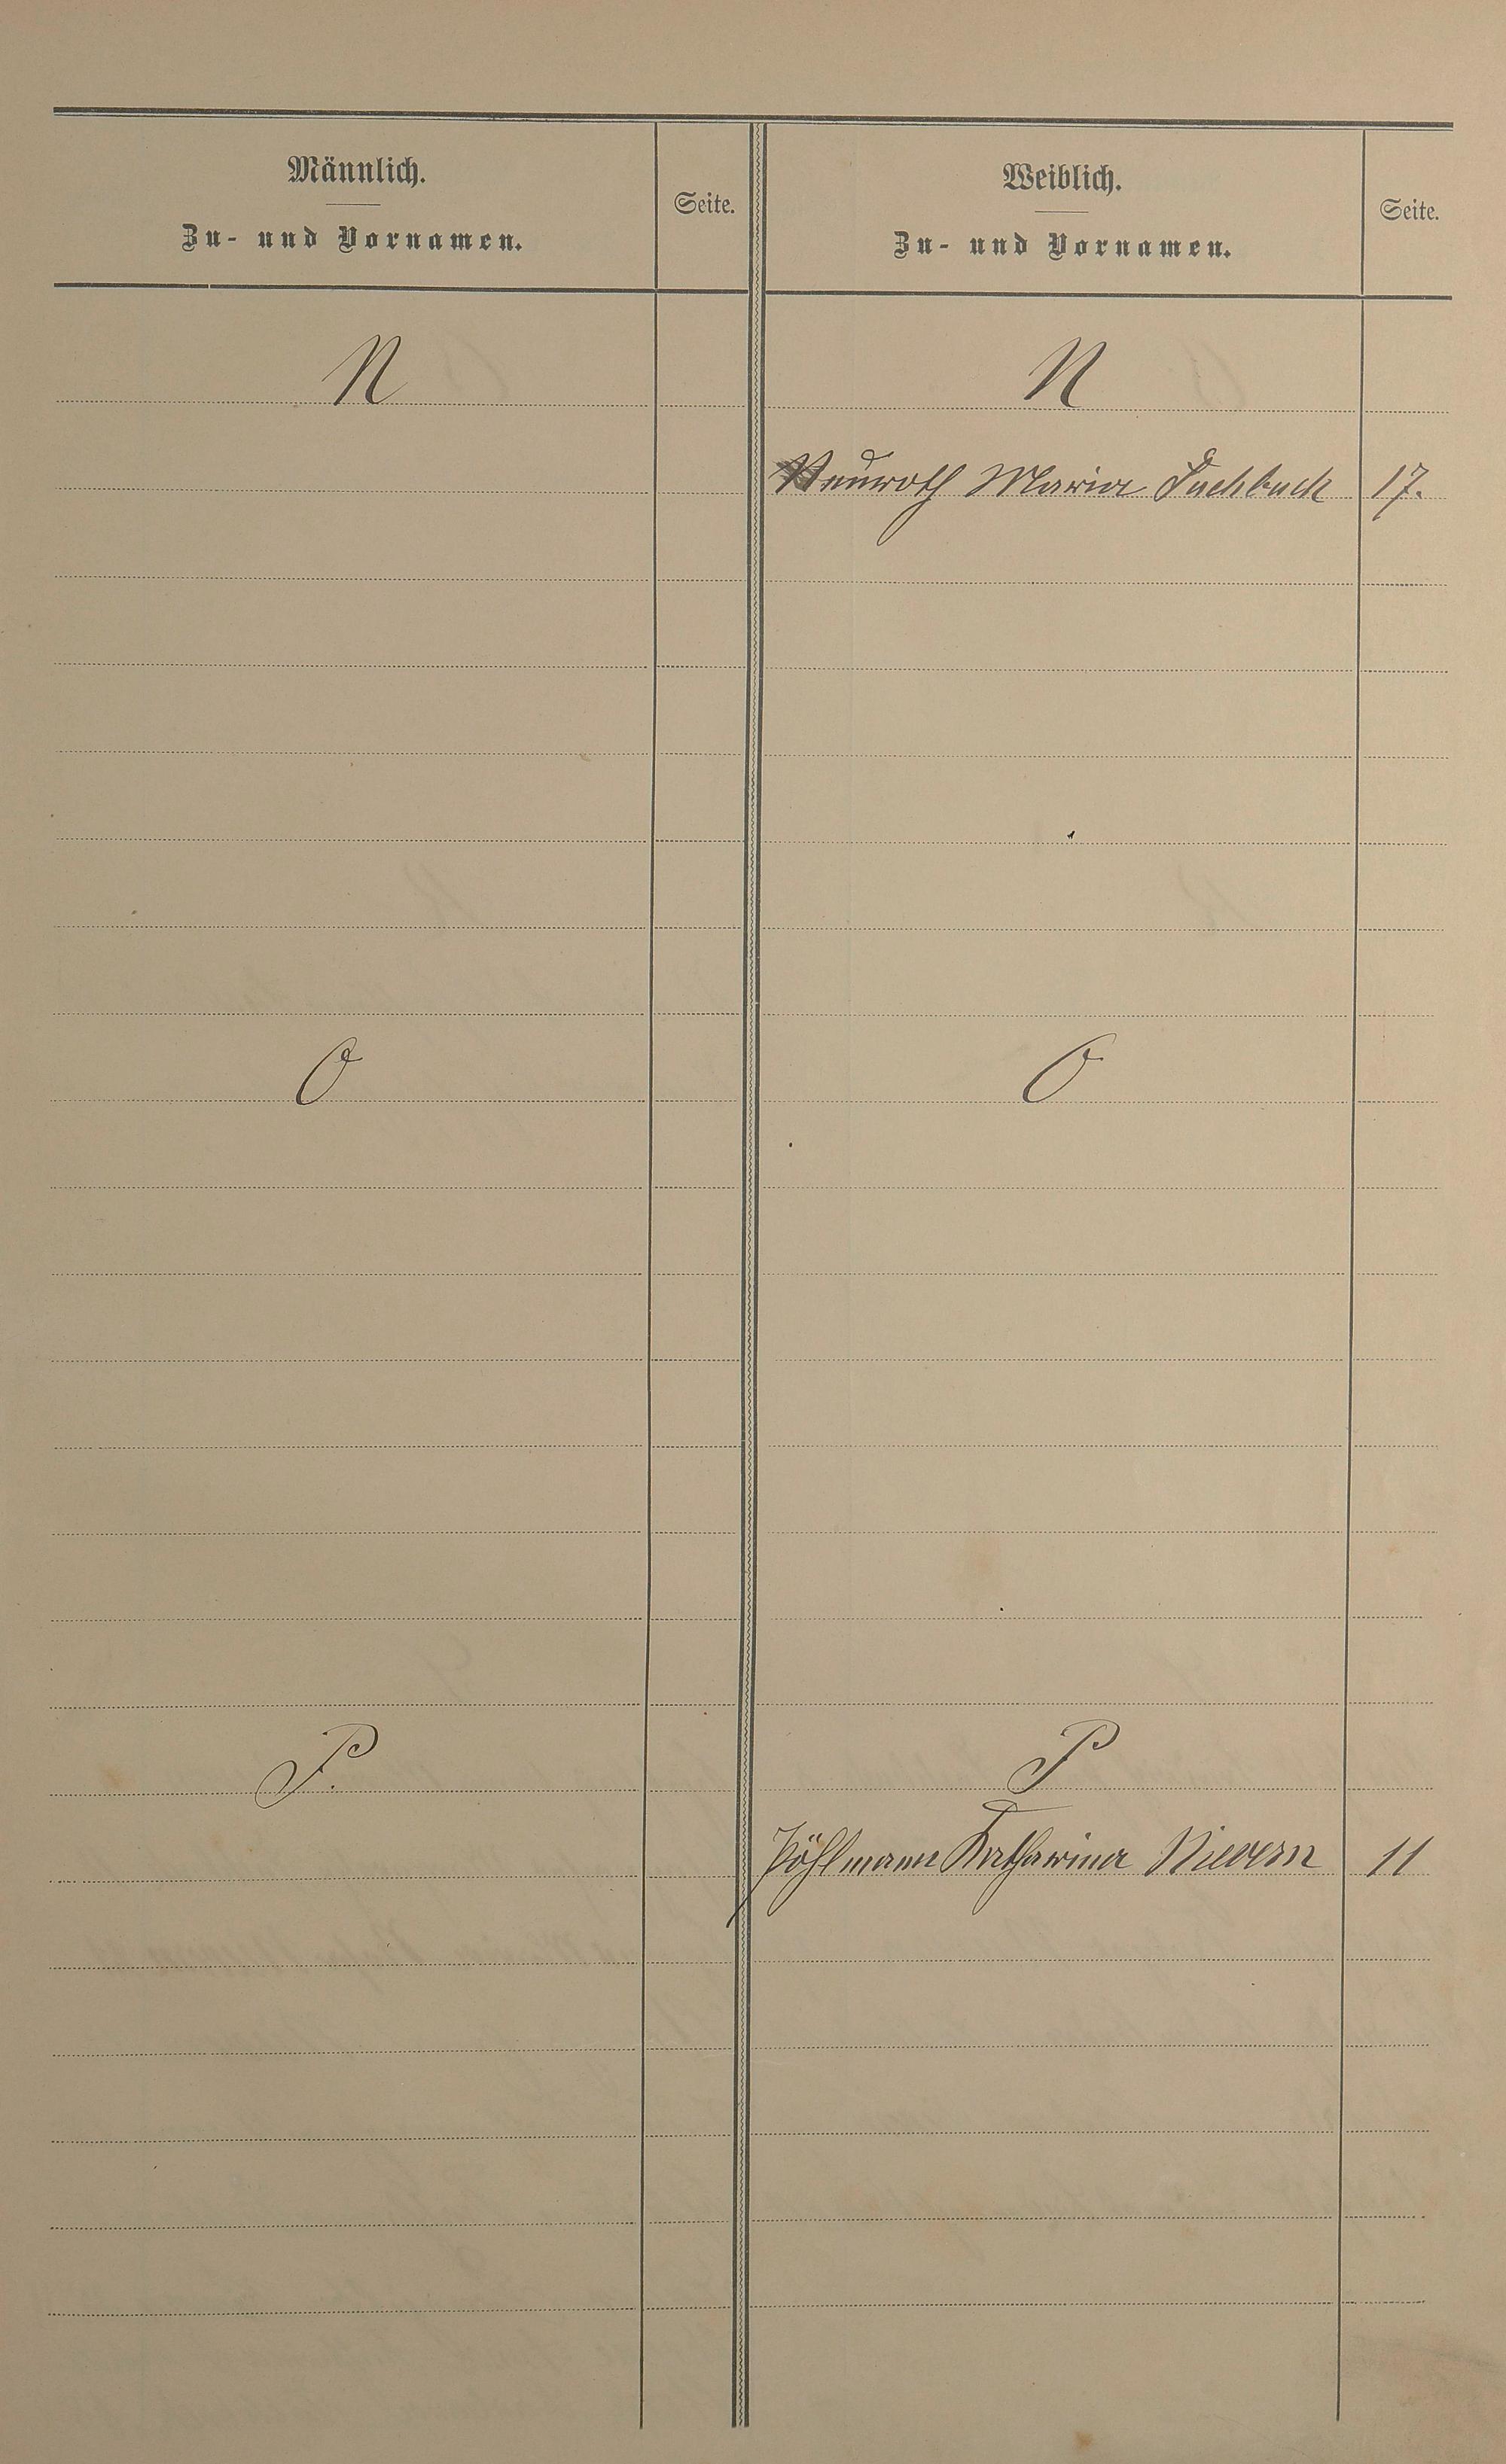 Männlich.
Zu- und Vornamen.
Seite.
Weiblich.
Zu- und Vornamen.
Seite.
N
N
Neuroth Maria Fachbach 17.
O
O
P.
P
Pöhlmann Katharina Nievern 11